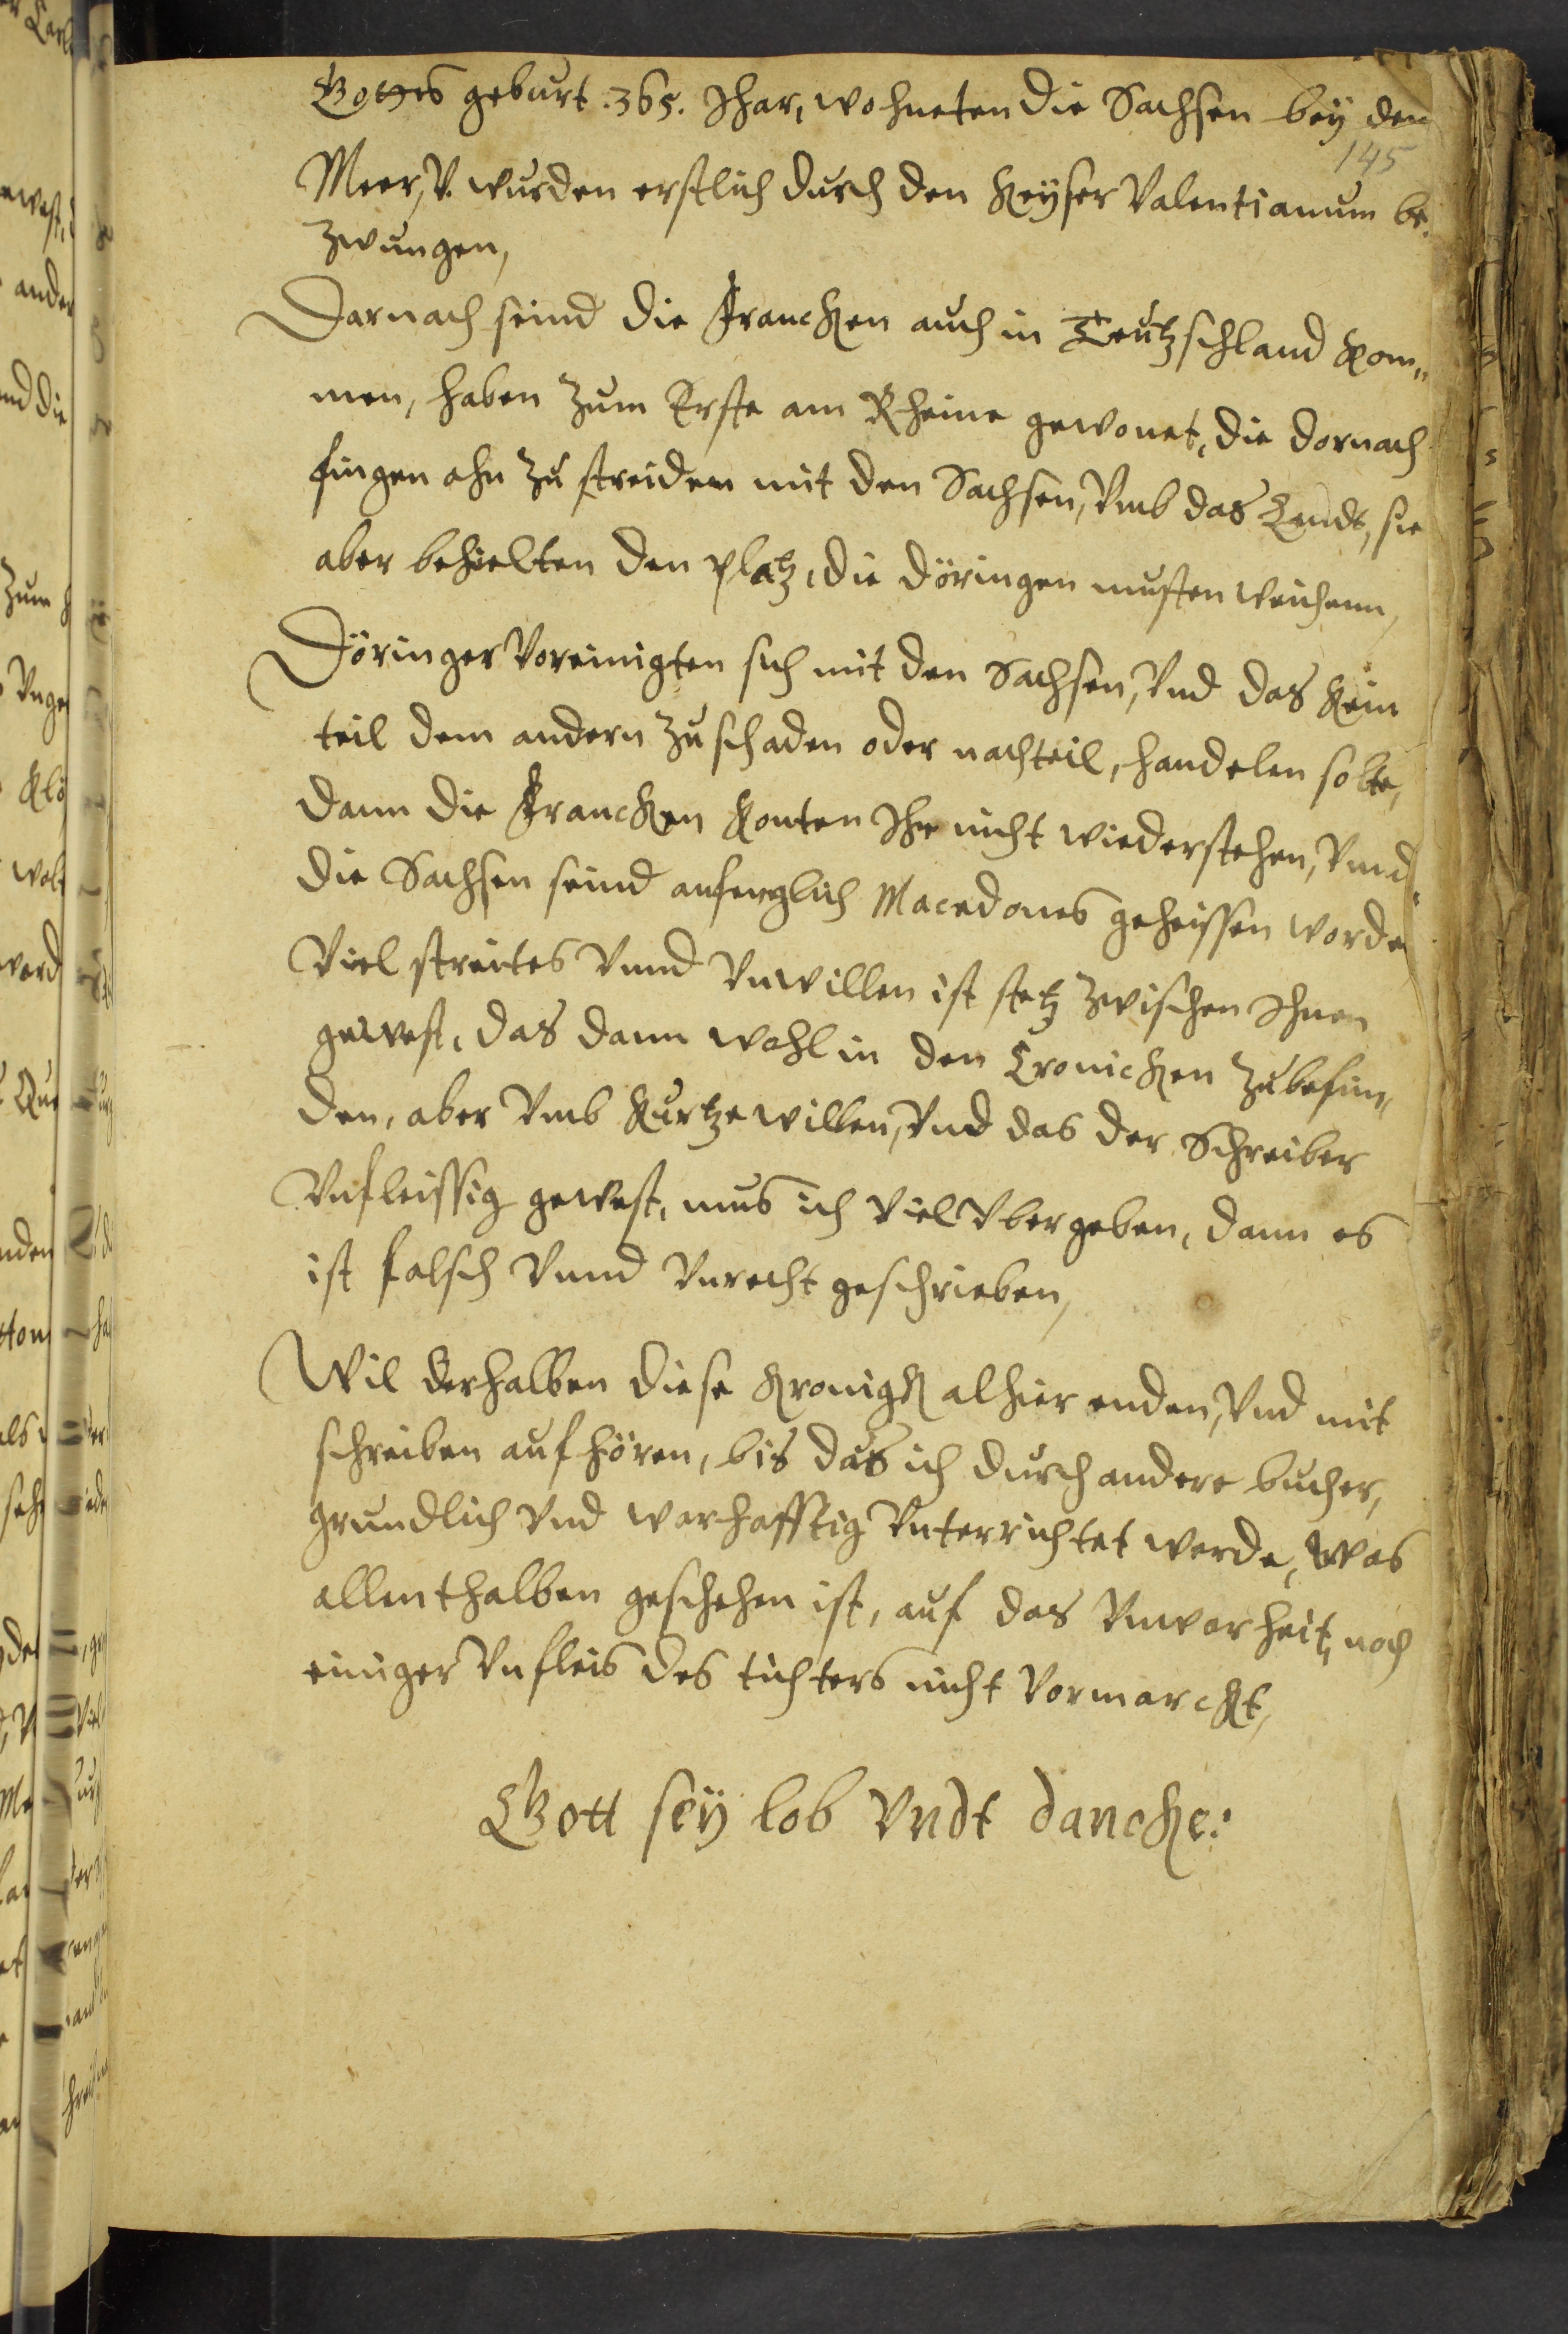 Gottes geburt .365. Jhar, wohneten die Sachsen bey den
145
Meer, V. wurden erstlich durch den Keyser Valentianum be¬
zwungen,
Darnach seind die Francken auch in Teutzschland kom„
men, haben zum Erste am Rheine gewonet, die dornach
fingen ahn zu streiden mit den Sachsen, Vmb das Landt, sie
aber behielten den platz, die döringen musten weichenn,
Döringer Voreinigten sich mit den Sachsen, Vnd das kein
teil dem andern zu schaden oder nachteil, handelen solte,
dann die Francken konten Ihr nicht wiederstehen, Vnnd
die Sachsen seind anfenglich Macedones geheissen worde
Viel streites Vnnd Vnwillen ist stetz zwischen Ihnen
gewest, das dann wohl in den Cronicken zubefin„
den, aber Vmb kurtze willen, Vnd das der Schreiber
Vnfleissig gewest, mus ich Viel Vbergeben, dann es
ist falsch Vnnd Vnrecht geschrieben,
Wil derhalben diese Kronigk alhier enden, Vnd mit
schreiben aufhören, bis das ich durch andere bucher,
grundlich Vnd warhafftig Vnterrichtet werde, was
allenthalben geschehen ist, auf das Vnwarheit, noch
einiger Vnfleis des tichters nicht Vormarckt,
Gott sey lob Vndt dancke: